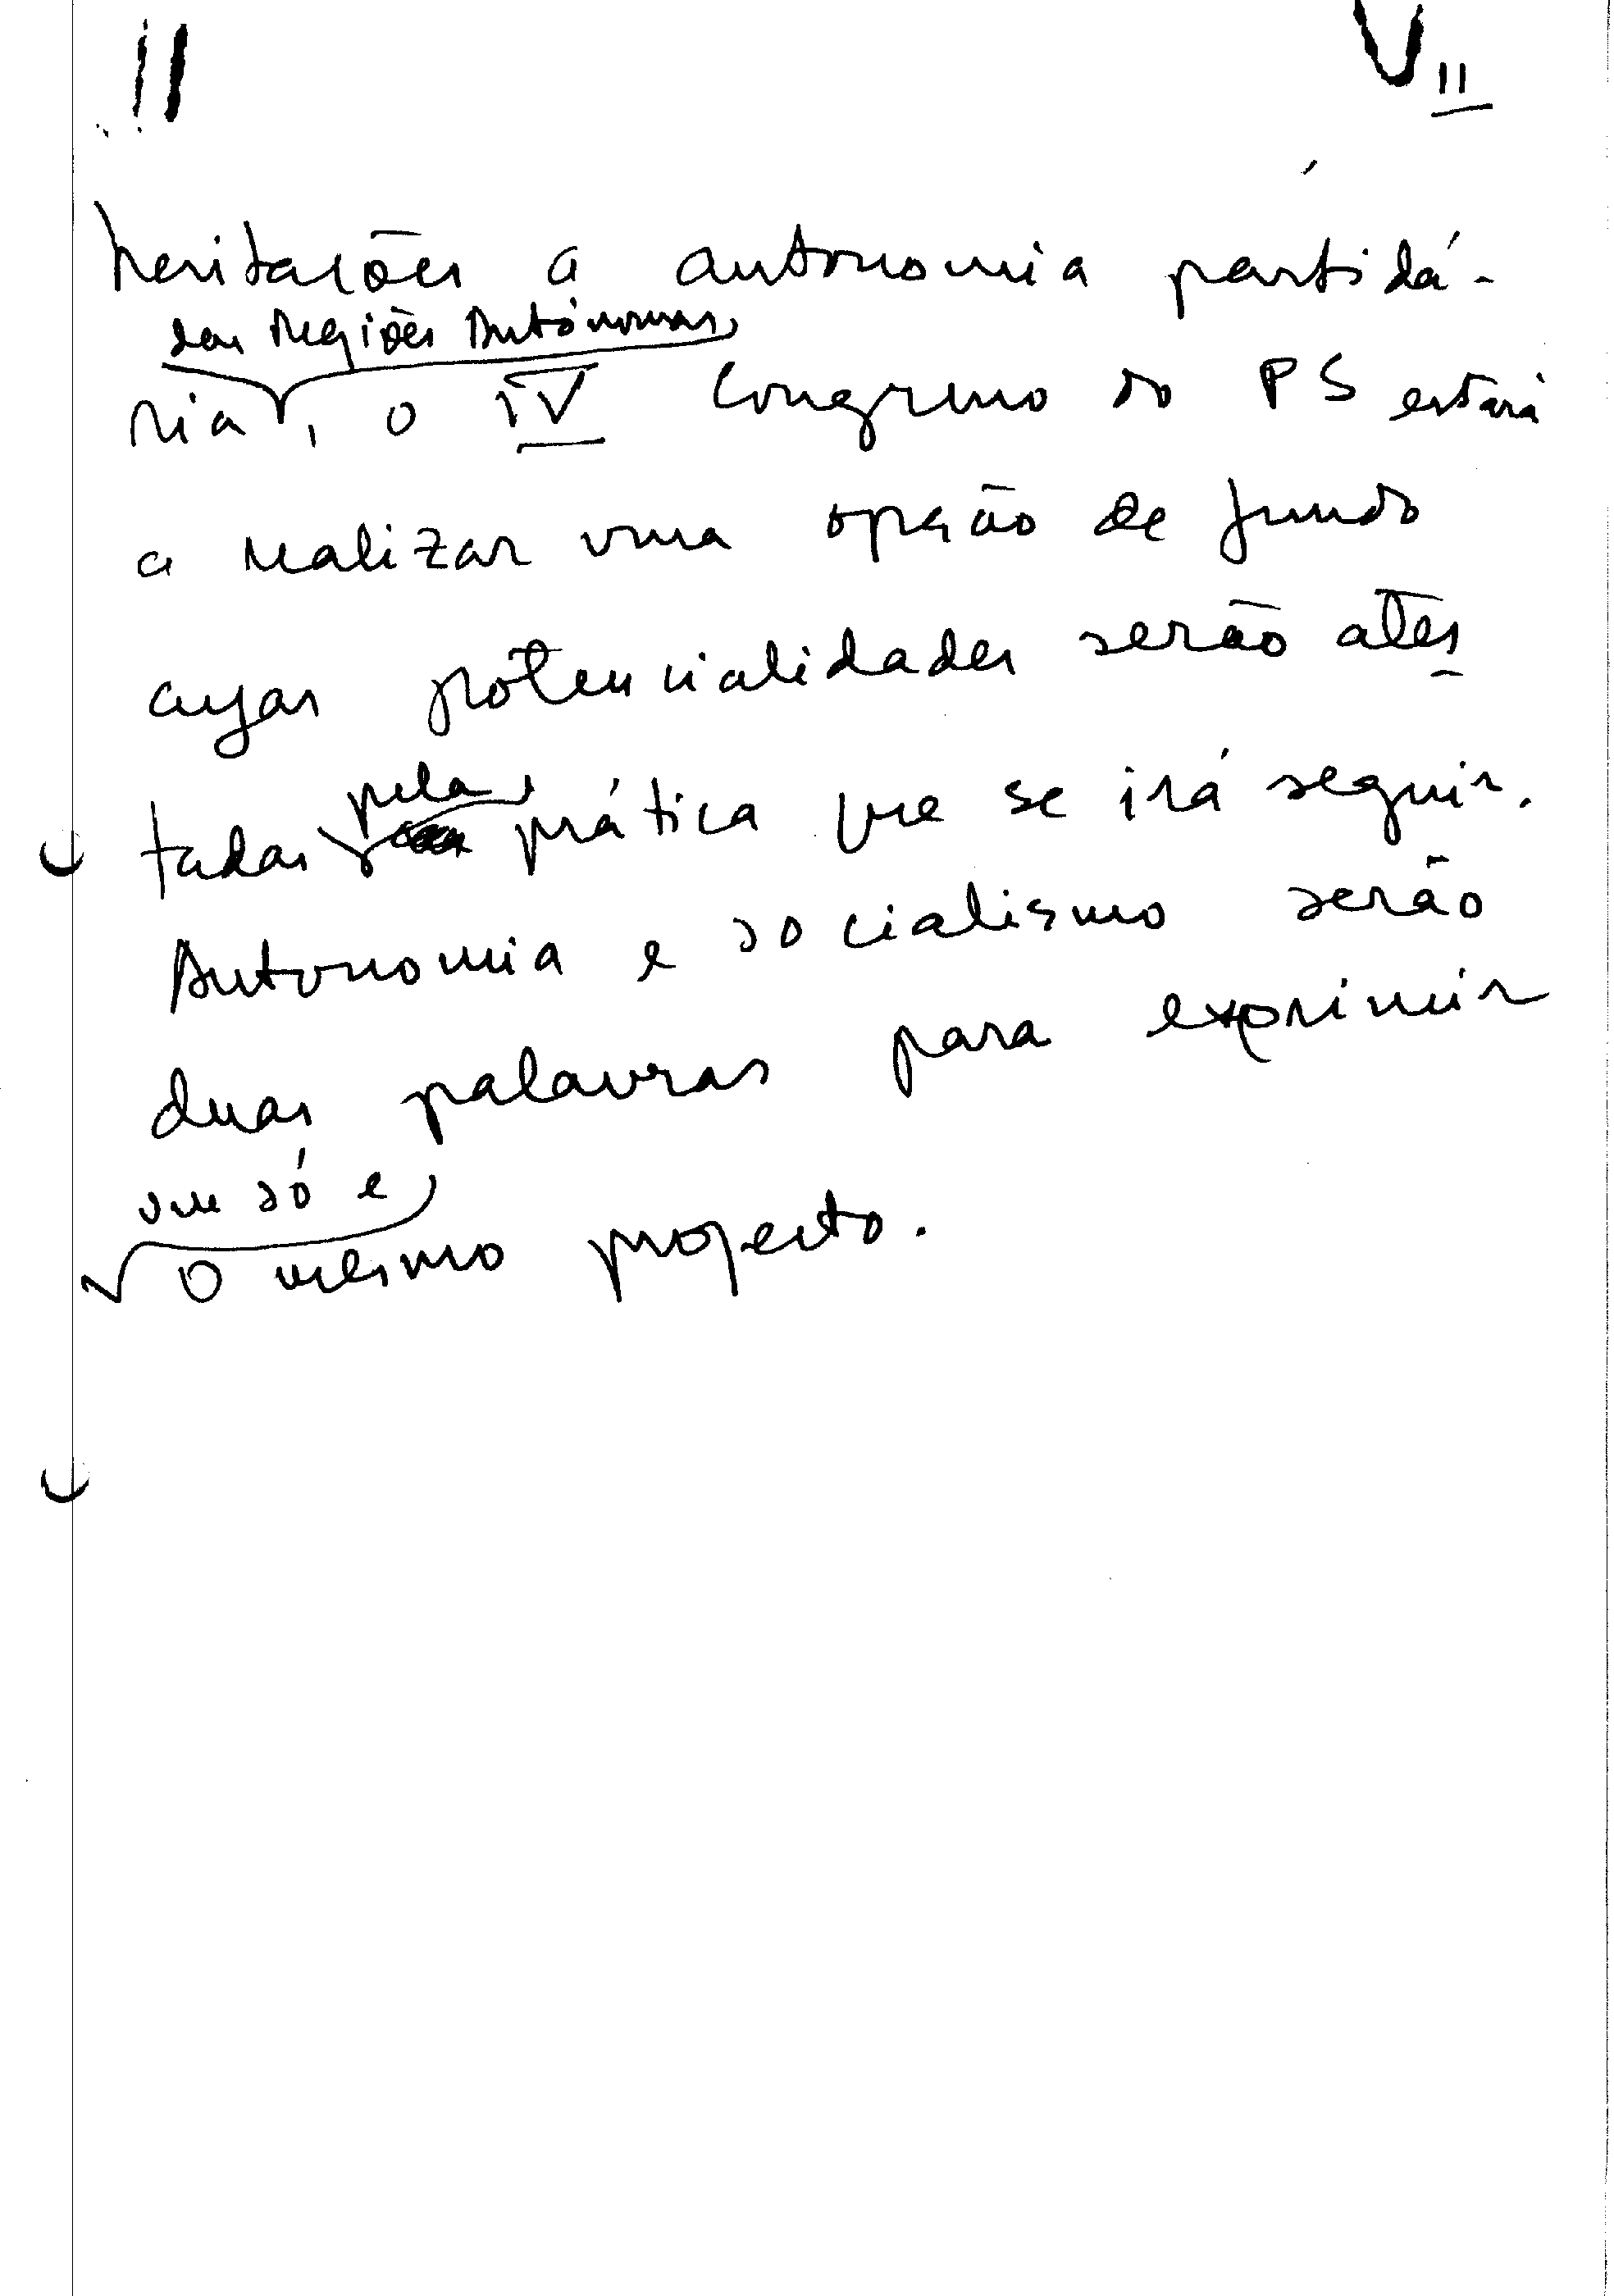 11
V 11
hesitações a autonomia partidá-
das Regiões Autónomas
ria, o IV Congresso do PS estará
a realizar uma opção de fundo
cujas potencialidades serão ates
pela
tadas prática que se irá seguir.
Autonomia e socialismo serão
duas palavras para exprimir
um só e
o mesmo projecto.